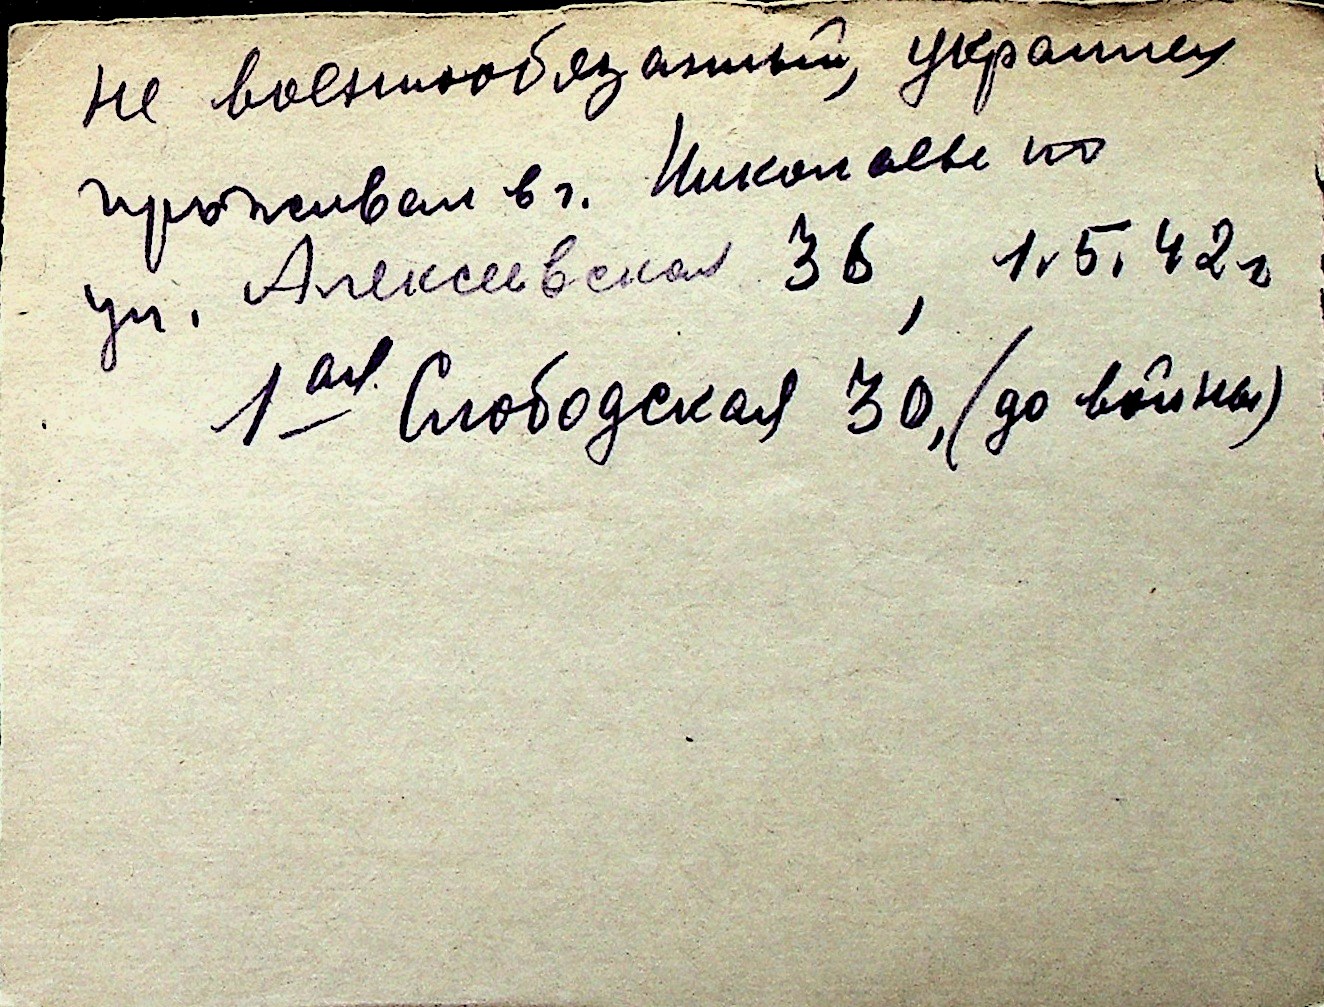 Не военнообязанный, украинец
проживал в г. Николаеве по
ул. Алексеевская 36, 1.5.42 г
1ая Слободская 30, (до войны)